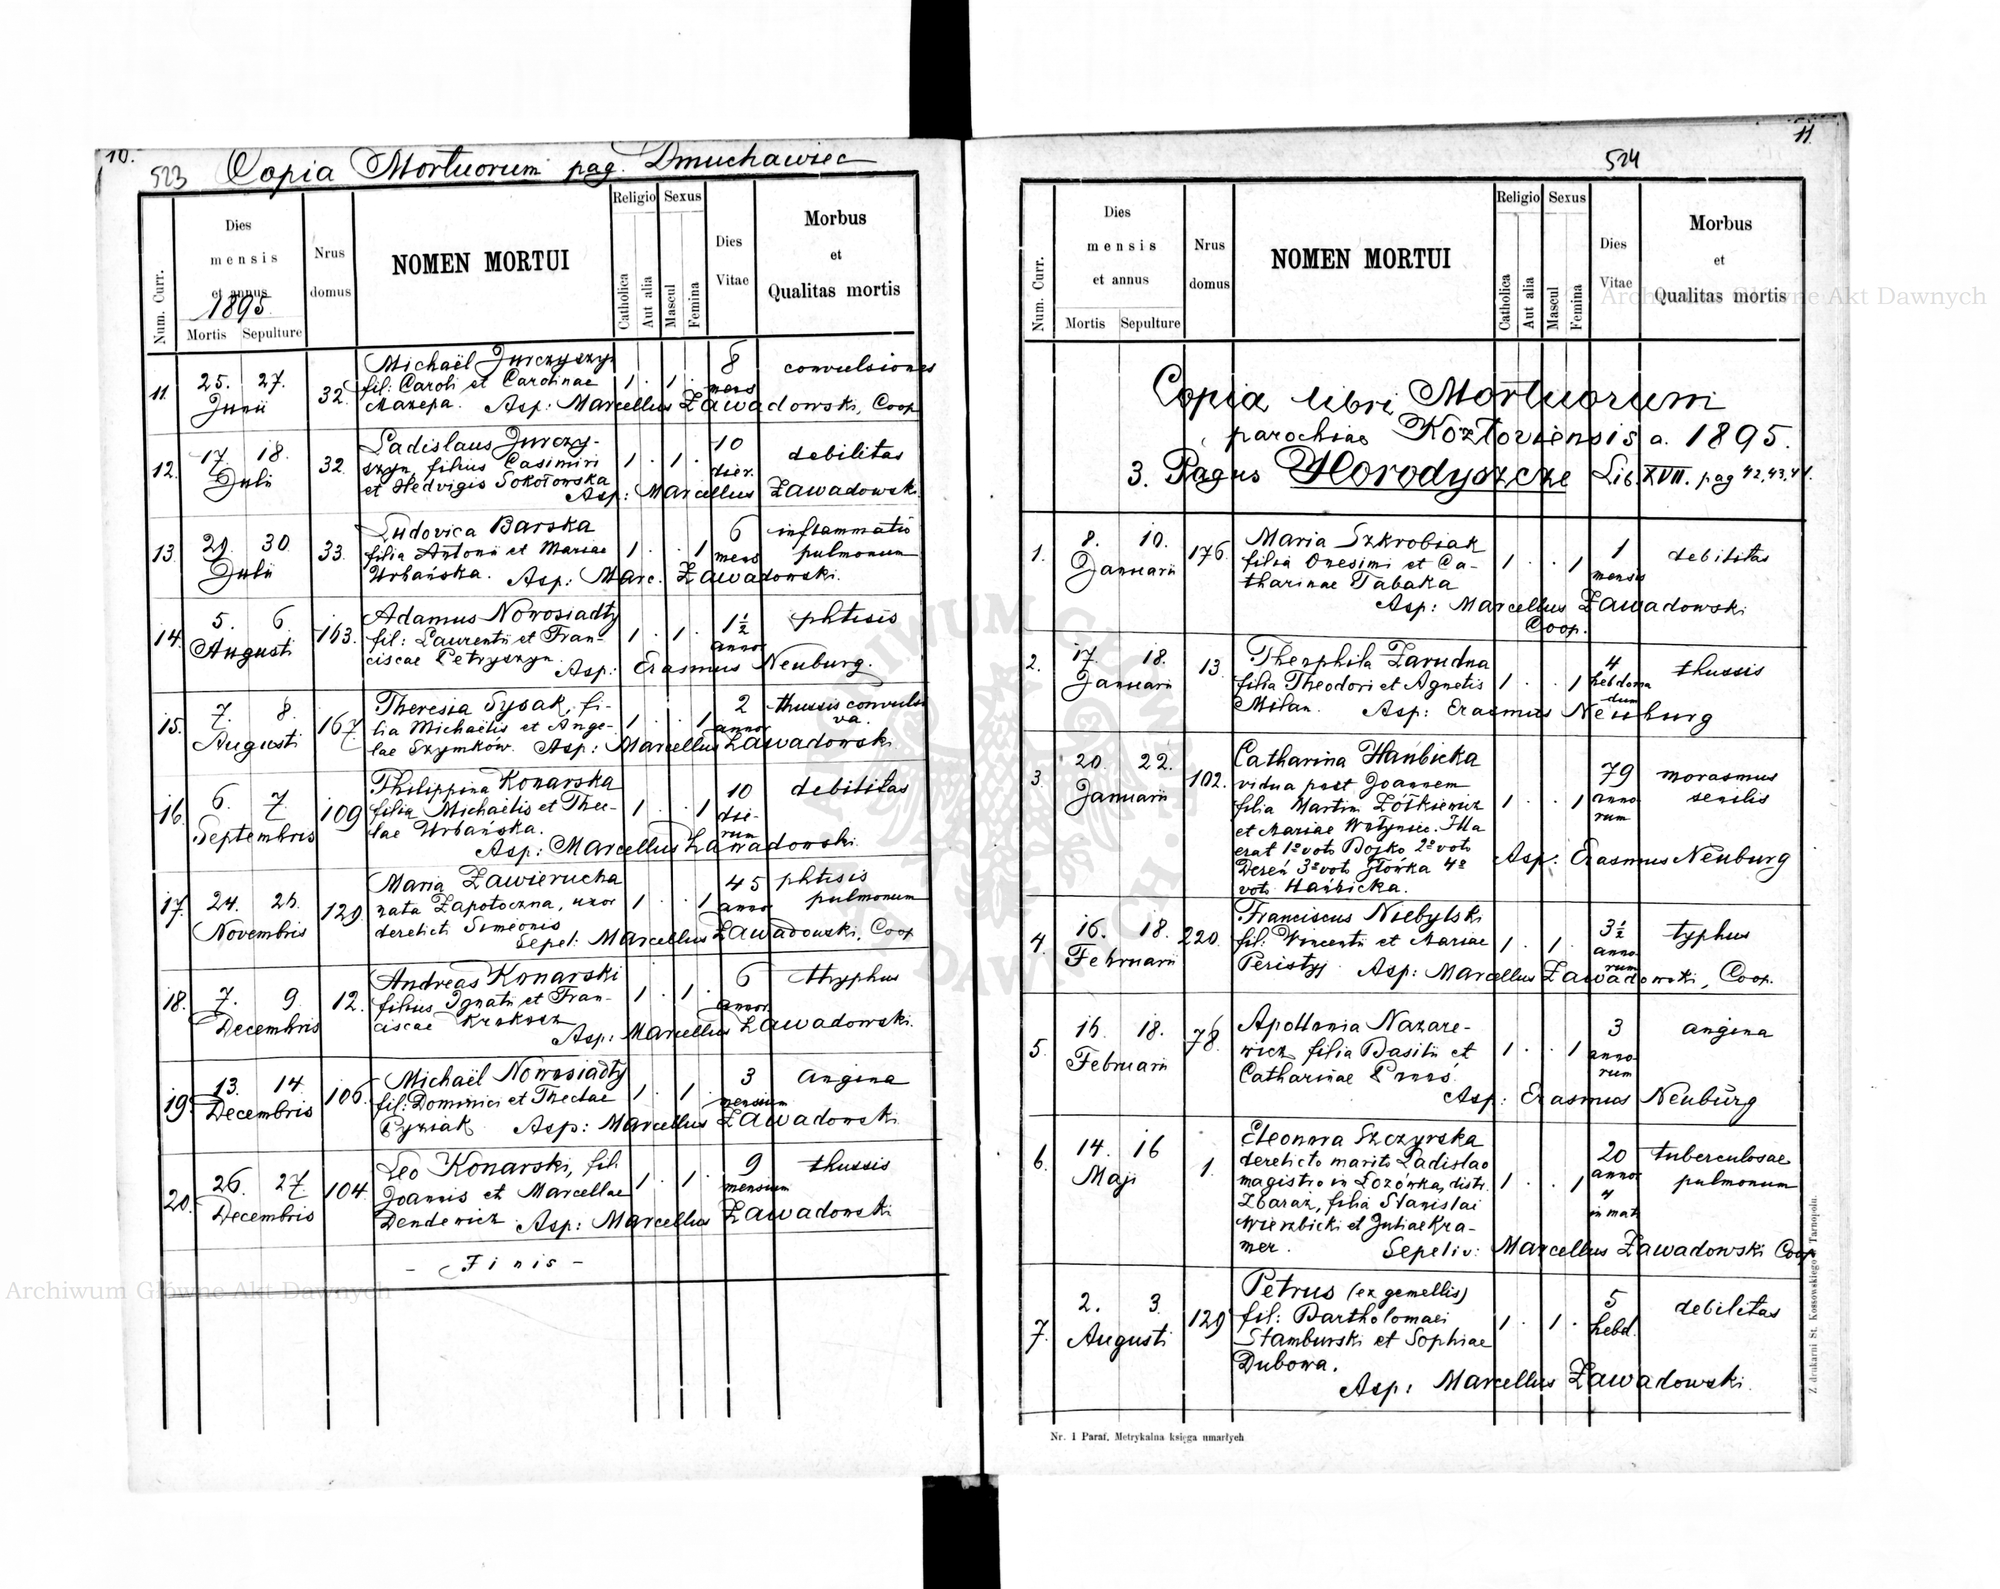 10.
523 Copia Mortuorum pag. Dmuchawiec
Num. Curr.
Dies
mensis
et annus
1895.
Mortis Sepulture
Nrus
domus
NOMEN MORTUI
Religio
Catholica
Aut alia
Sexus
Mascul
Femina
Dies
Vitae
Morbus
et
Qualitas mortis
11. 25. 27. Junii 32. Michaël Jurczyszyn 1 . 1 . 8 mens convulsiones
fil: Caroli et Carolinae
Mazepa. Asp: Marcellus Zawadowski, Coop
12. 17 18. Julii 32. Ladislaus Jurczy- 1 . 1 . 10 dier. debilitas
szyn, filius Casimiri
et Hedvigis Sokołowska
Asp: Marcellus Zawadowski.
13. 29. 30. Julii 33. Ludovica Barska 1 . . 1 6 mens inflammatio
filia Antoni et Mariae pulmonum
Urbańska. Asp: Marc. Zawadowski.
14. 5. 6. Augusti 163. Adamus Nowosiadły 1 . 1 . 1½ annor phtisis
fil: Laurentii et Fran-
ciscae Petryszyn. Asp: Erasmus Neuburg.
15. 7. 8. Augusti 167. Theresia Sysak, fi- 1 . . 1 2 annor thussis convulsi
lia Michaëlis et Ange- va.
lae Szymków. Asp: Marcellus Zawadowski.
16. 6. 7. Septembris 109 Philippina Konarska 1 . . 1 10 die- debilitas
filia Michaëlis et Thec- rum
lae Urbańska.
Asp: Marcellus Zawadowski.
17. 24. 26. Novembris 129. Maria Zawierucha 1 . . 1 45 annor phtisis
nata Zapotoczna, uxor pulmonum
derelicti Simeonis
Sepel: Marcellus Zawadowski, Coop
18. 7. 9. Decembris 12. Andreas Konarski 1 . 1 . 6 annor thyphus
filius Ignatii et Fran-
ciscae Krokosz
Asp: Marcellus Zawadowski.
19. 13. 14. Decembris 106. Michaël Nowosiadły 1 . 1 . 3 mensium angina
fil: Dominici et Theclae
Pyziak. Asp: Marcellus Zawadowski
20. 26. 27. Decembris 104. Leo Konarski, fil: 1 . 1 . 9 mensium thussis
Joannis et Marcellae
Dendericz. Asp: Marcellus Zawadowski
- Finis -
Archiwum Główne Akt Dawnych
11.
524
Num. Curr.
Dies
mensis
et annus
Mortis Sepulture
Nrus
domus
NOMEN MORTUI
Religio
Catholica
Aut alia
Sexus
Mascul
Femina
Dies
Vitae
Morbus
et
Qualitas mortis
Archiwum Główne Akt Dawnych
Copia libri Mortuorum
parochiae Kozłoviensis a. 1895.
3. Pagus Horodyszcze Lib. XVII. pag 42,43,44.
1. 8. 10. Januarii 176. Maria Szkrobiak 1 . . 1 1 mensis debilitas
filia Onesimi et Ca-
tharinae Tabaka
Asp: Marcellus Zawadowski
Coop.
2. 17. 18. Januarii 13. Theophila Zarudna 1 . . 1 4 hebdoma dum thussis
filia Theodori et Agnetis
Milan. Asp: Erasmus Neuburg
3. 20. 22. Januarii 102. Catharina Hańbicka 1 . . 1 79 anno rum marasmus
vidua post Joannem senilis
filia Martini Żółkiewicz
et Mariae Wołyniec. Illa
erat 1º voto Bojko 2º voto
Dereń 3º voto Główka 4º Asp: Erasmus Neuburg
voto Hańbicka.
4. 16. 18. Februarii 220. Franciscus Niebylski 1 . 1 . 3½ anno rum typhus
fil: Vincentii et Mariae
Peristyj. Asp: Marcellus Zawadowski, Coop.
5. 16. 18. Februarii 78. Apollonia Nazare- 1 . . 1 3 anno rum angina
wicz filia Basilii et
Catharinae
Asp: Erasmus Neuburg
6. 14. 16 Maji 1. Eleonora Szczyrska 1 . . 1 20 annor 4 in mat. tuberculosae
derelicto marito Ladislao pulmonum
magistro in Łozówka, distr.
Zbaraż, filia Stanislai
Wierzbicki et Juliae Kra-
mer. Sepeliv: Marcellus Zawadowski Coop
7. 2. 3. Augusti 129 Petrus (ex gemellis) 1 . 1 . 5 hebd. debilitas
fil: Bartholomaei
Stamburski et Sophiae
Dubowa.
Asp: Marcellus Zawadowski.
Nr. 1 Paraf. Metrykalna księga umarłych
Z drukarni St. Kossowskiego Tarnopolu.
ARCHIWUM GŁÓWNE AKT DAWNYCH